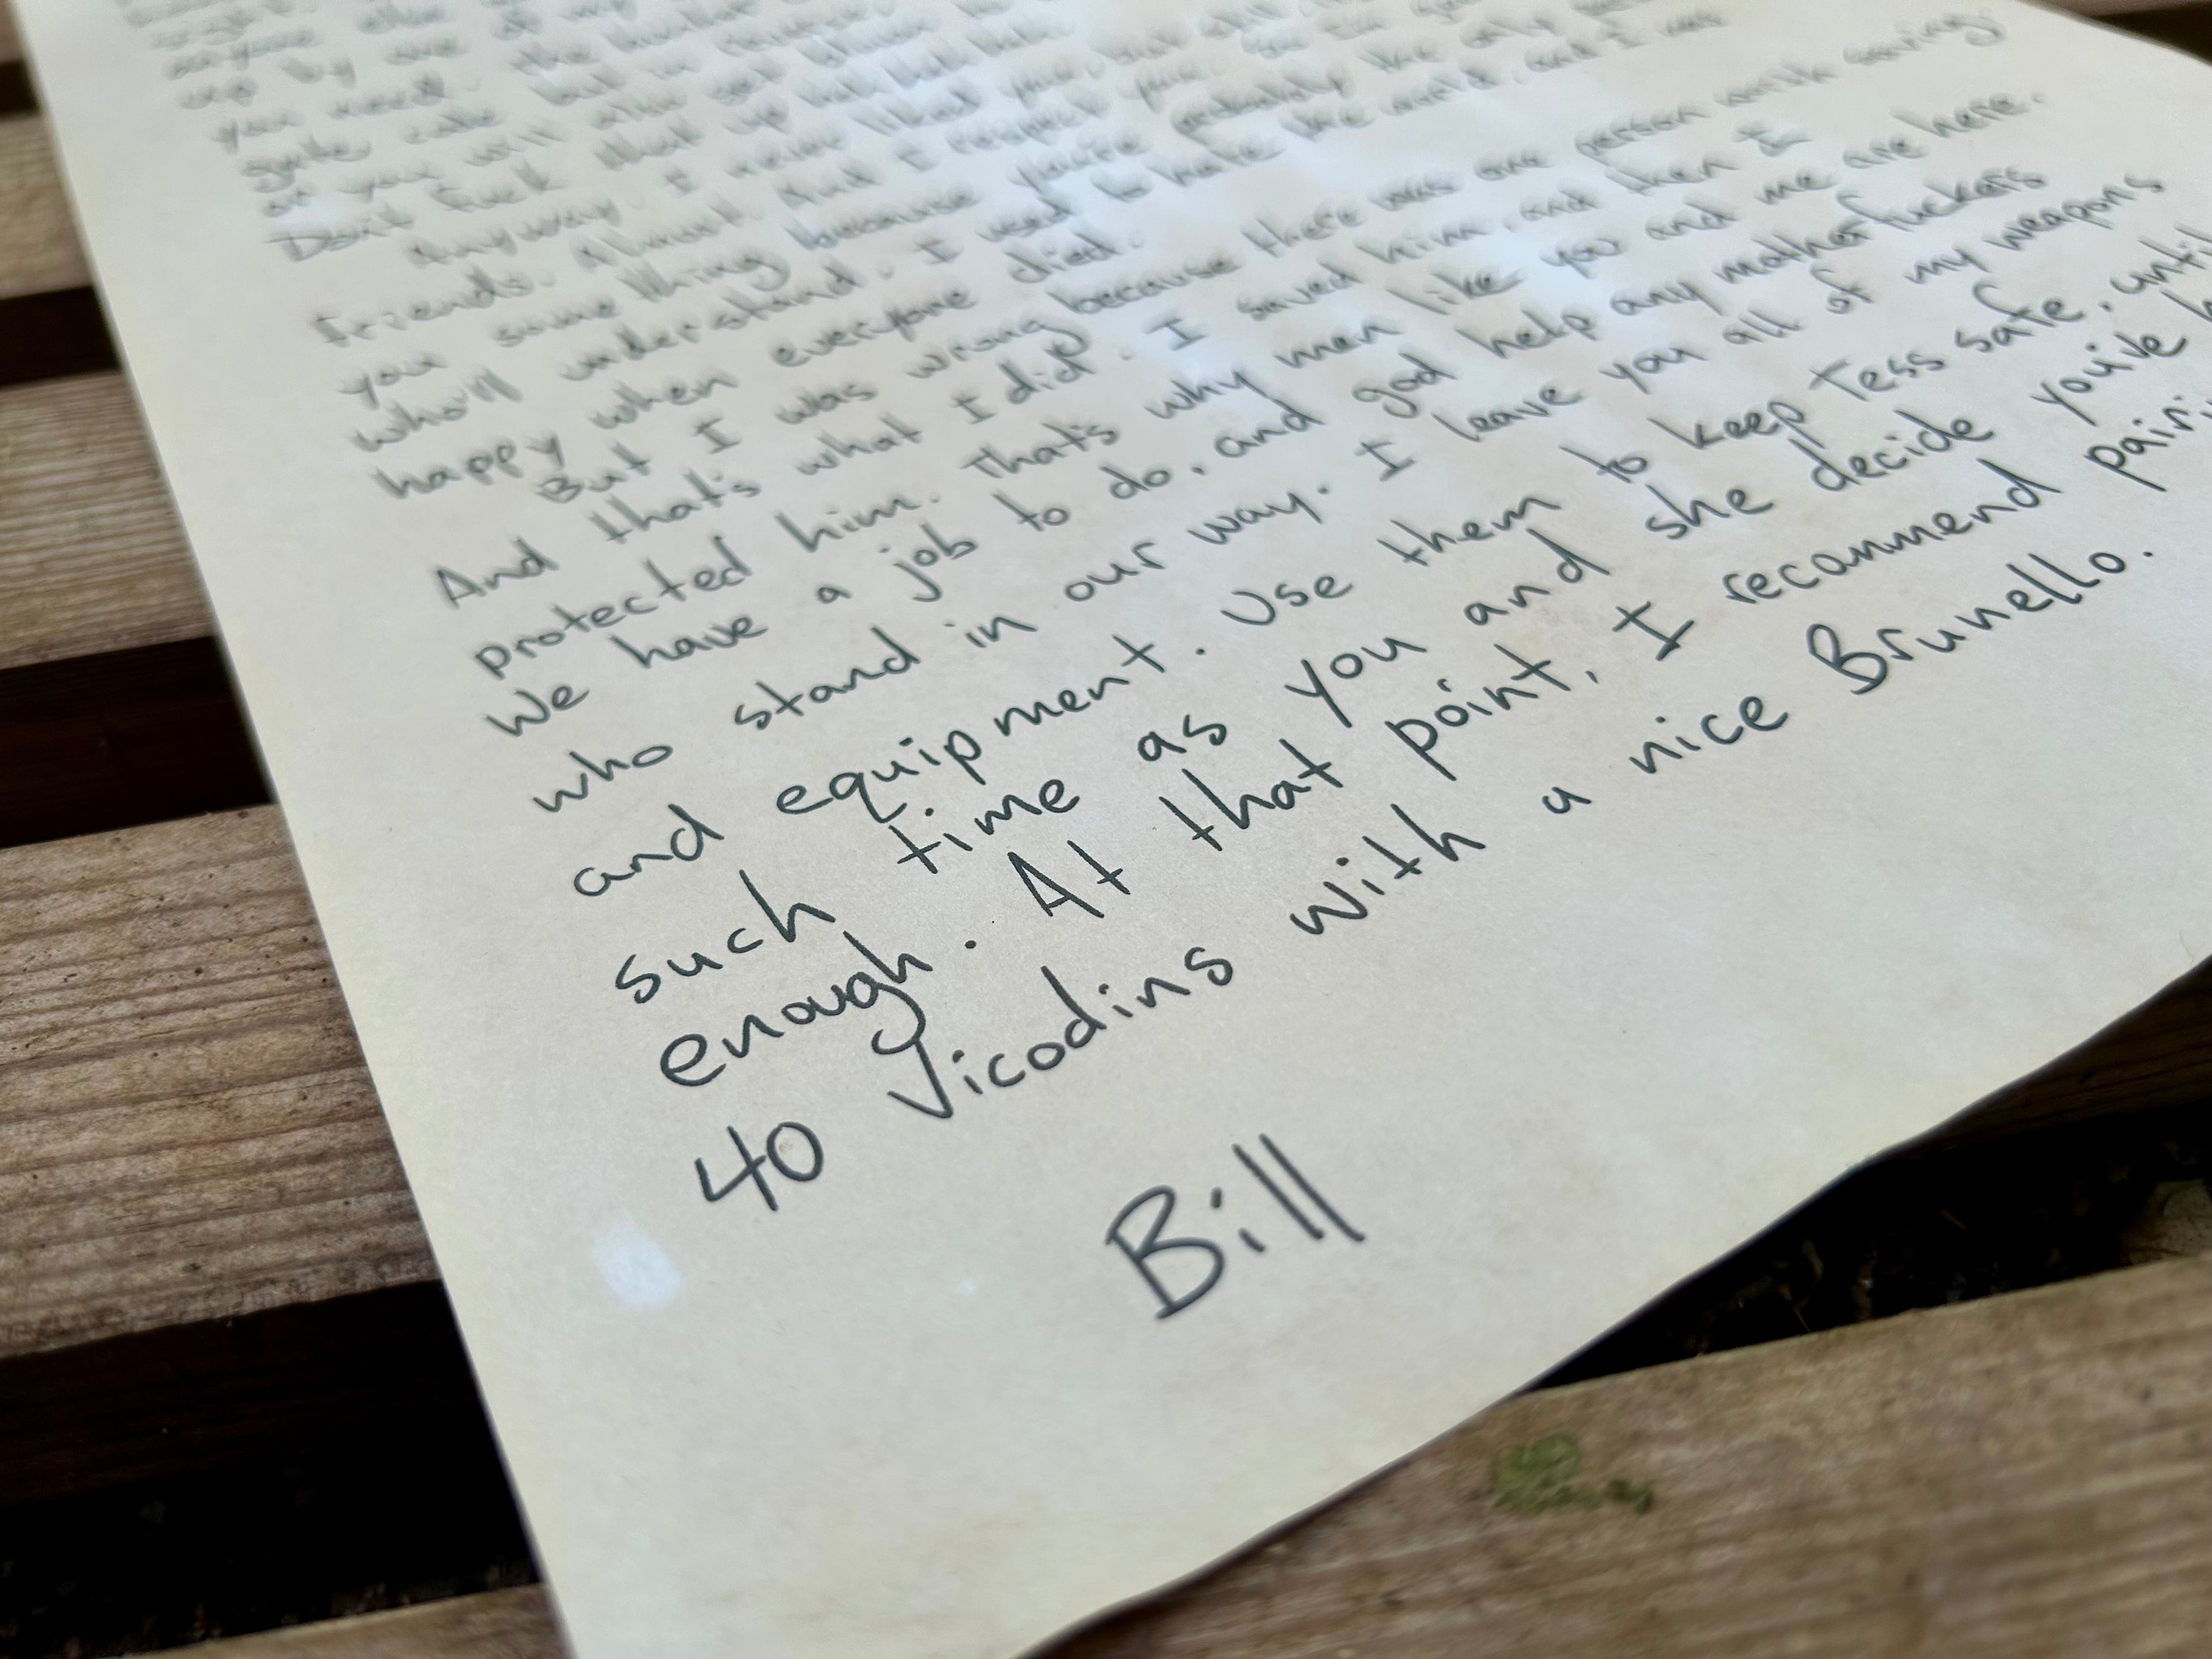 anyone else
up by one of my
you need. the bunker
gate code but in
of you will also get
Don't fuck that up
Anyway. I never liked you, but still
friends. Almost. And I respect you. So I'm
you something because you're probably the only
who'll understand. I used to hate the world, and I was
happy when everyone died.
But I was wrong because there was one person worth saving.
And that's what I did. I saved him, and then I
protected him. That's why men like you and me are here.
We have a job to do, and god help any motherfuckers
who stand in our way. I leave you all of my weapons
and equipment. Use them to keep Tess safe, until
such time as you and she decide you've
enough. At that point, I recommend
40 Vicodins with a nice Brunello.
Bill